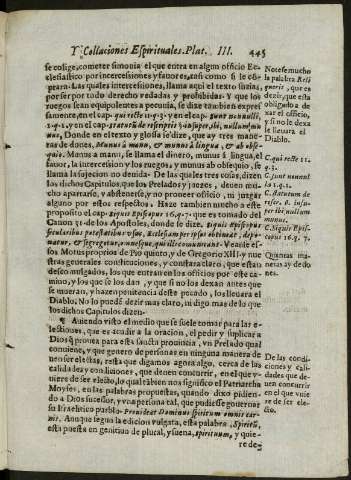 Y Collaciones Espirituales. Plat. III. 445
se colige, cometer simonia el que entra en algun officio Ec-
clesiastico por intercessiones y fauores, assi como si le cõ-
prara. Las quales intercessiones, llama aqui el texto
por ser por todo derecho vedadas y prohibidas. Y que los
ruegos sean equipolentes a pecunia, se dize tambien expres-
samente, en el cap. qui recte 11. q. 3. y en el cap. sunt nonnulli,
1. q. 1. y en el cap. statutũ de rescriptis
nus, Donde en el texto y glossa se dize, que ay tres mane-
ras de dones, Munus à manu, & munus à lingua, & ab obse-
quio. Munus a manu, se llama el dinero, munus à lingua, el
fauor, la intercession y los ruegos, y munus ab obsequio, se
llama la sujecion no deuida. De las quales tres cosas, dizen
los dichos Capitulos, que los Prelados y juezes, deuen mu-
cho apartarse, y abstenerse, y no proueer officio, ni juzgar
alguno por estos respectos. Haze tambien mucho a este
proposito el cap. siquis Episcopus 16. q. 7. que es tomado del
Canon 31 de los Apostoles, donde se dize, siquis Episcopus,
secularibus potestatibus vsus, Ecclesiam per ipsos obtineat, depo-
natur, & segregetur, omnesque, qui illi communicant. Vease es-
sos Motus proprios de Pio quinto, y de Gregorio XIII. y nue
stras generales constituciones, y constara claro, que estan
descomulgados, los que entran en los officios por este ca-
mino, y los que se los dan, y que si no los dexan antes que
se mueran, y hazen penitencia deste pecado, los lleuara el
Diablo. No lo puedẽ dezir mas claro, ni digo mas de lo que
los dichos Capitulos dizen.
¶ Auiendo visto el medio que se suele tomar para las e-
lectiones, que es acudir a la oracion, el pedir y suplicar a
Dios q̃ prouea para esta sancta prouincia, vn Prelado qual
conuiene, y que genero de personas en ninguna manera de
uen ser electas, resta que digamos agora algo, cerca de las
calidades y condiciones, que deuen concurrir, en el que vu-
uiere de ser electo, lo qual tãbien nos significo el Patriarcha
Moyses, en las palabras propuestas, quando dixo pidien-
do a Dios sucessor, y vna persona tal, que pudiesse gouernar
su Israelitico pueblo. Prouideat Dominus spirituum omnis car-
nis. Aunque segun la edicion vulgata, esta palabra, Spiritũ,
esta puesta en genitiuo de plural, y suena, spirituum, y quie-
re de-
Notese mucho
la palabra
que es
dezir, que esta
obligado a de
xar el officio,
y si no le dexa
le lleuara el
Diablo.
C. qui recte 11.
q. 3.
C. sunt nonnul
li 1. q. 1.
C. statutum de
C. Siquis Epis-
copus 16. q. 7.
Quantas ma-
neras ay de do
nes.
De las condi-
ciones y cali-
dades que de-
uen concurrir
en el que vuie
re de ser ele-
cto.